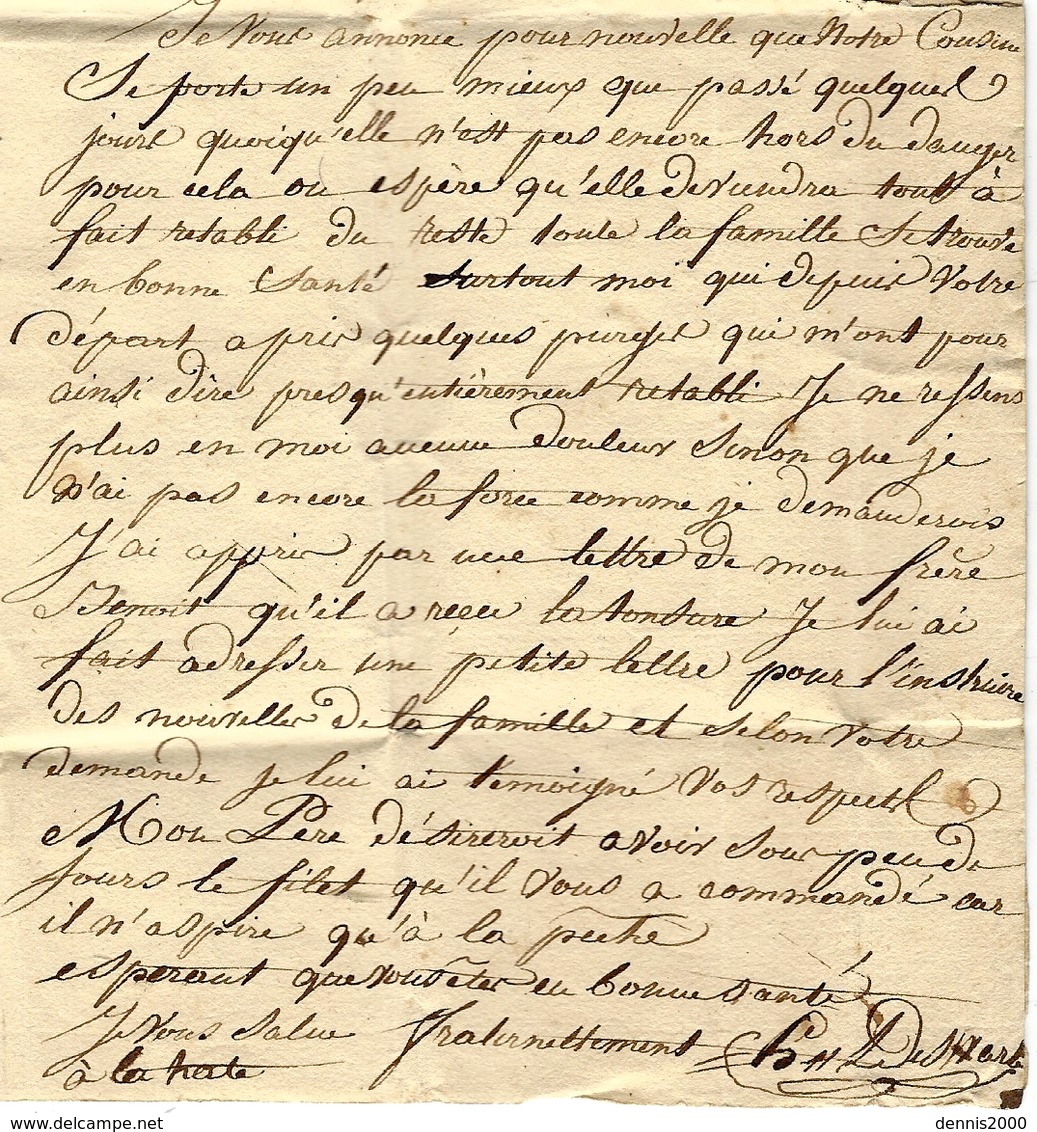 Je Vous annonce pour nouvelle que Notre Cousine
Se porte un peu mieux que passé quelques
jours quoiqu'elle n'est pas encore hors du danger
pour cela on espère qu'elle deviendra tout à
fait retabli du reste toute la famille Se trouve
en bonne Santé Surtout moi qui depuis Votre
départ a pris quelques purges qui m'ont pour
ainsi dire presqu'entièrement retabli Je ne ressens
plus en moi aucune douleur Sinon que je
n'ai pas encore la force comme je demanderois
J'ai appris par une lettre de mon frère
Benoit qu'il a reçu la tonsure Je lui ai
fait adresser une petite lettre pour l'instruire
des nouvelles de la famille et selon votre
demande je lui ai temoigné Vos respects
Mon Père désireroit avoir Sous peu de
jours le filet qu'il vous a commandé car
il n'aspire qu'à la peche
esperant que vous êtes en bonne santé
Je Vous salue fraternettement
à la hate
denis2000